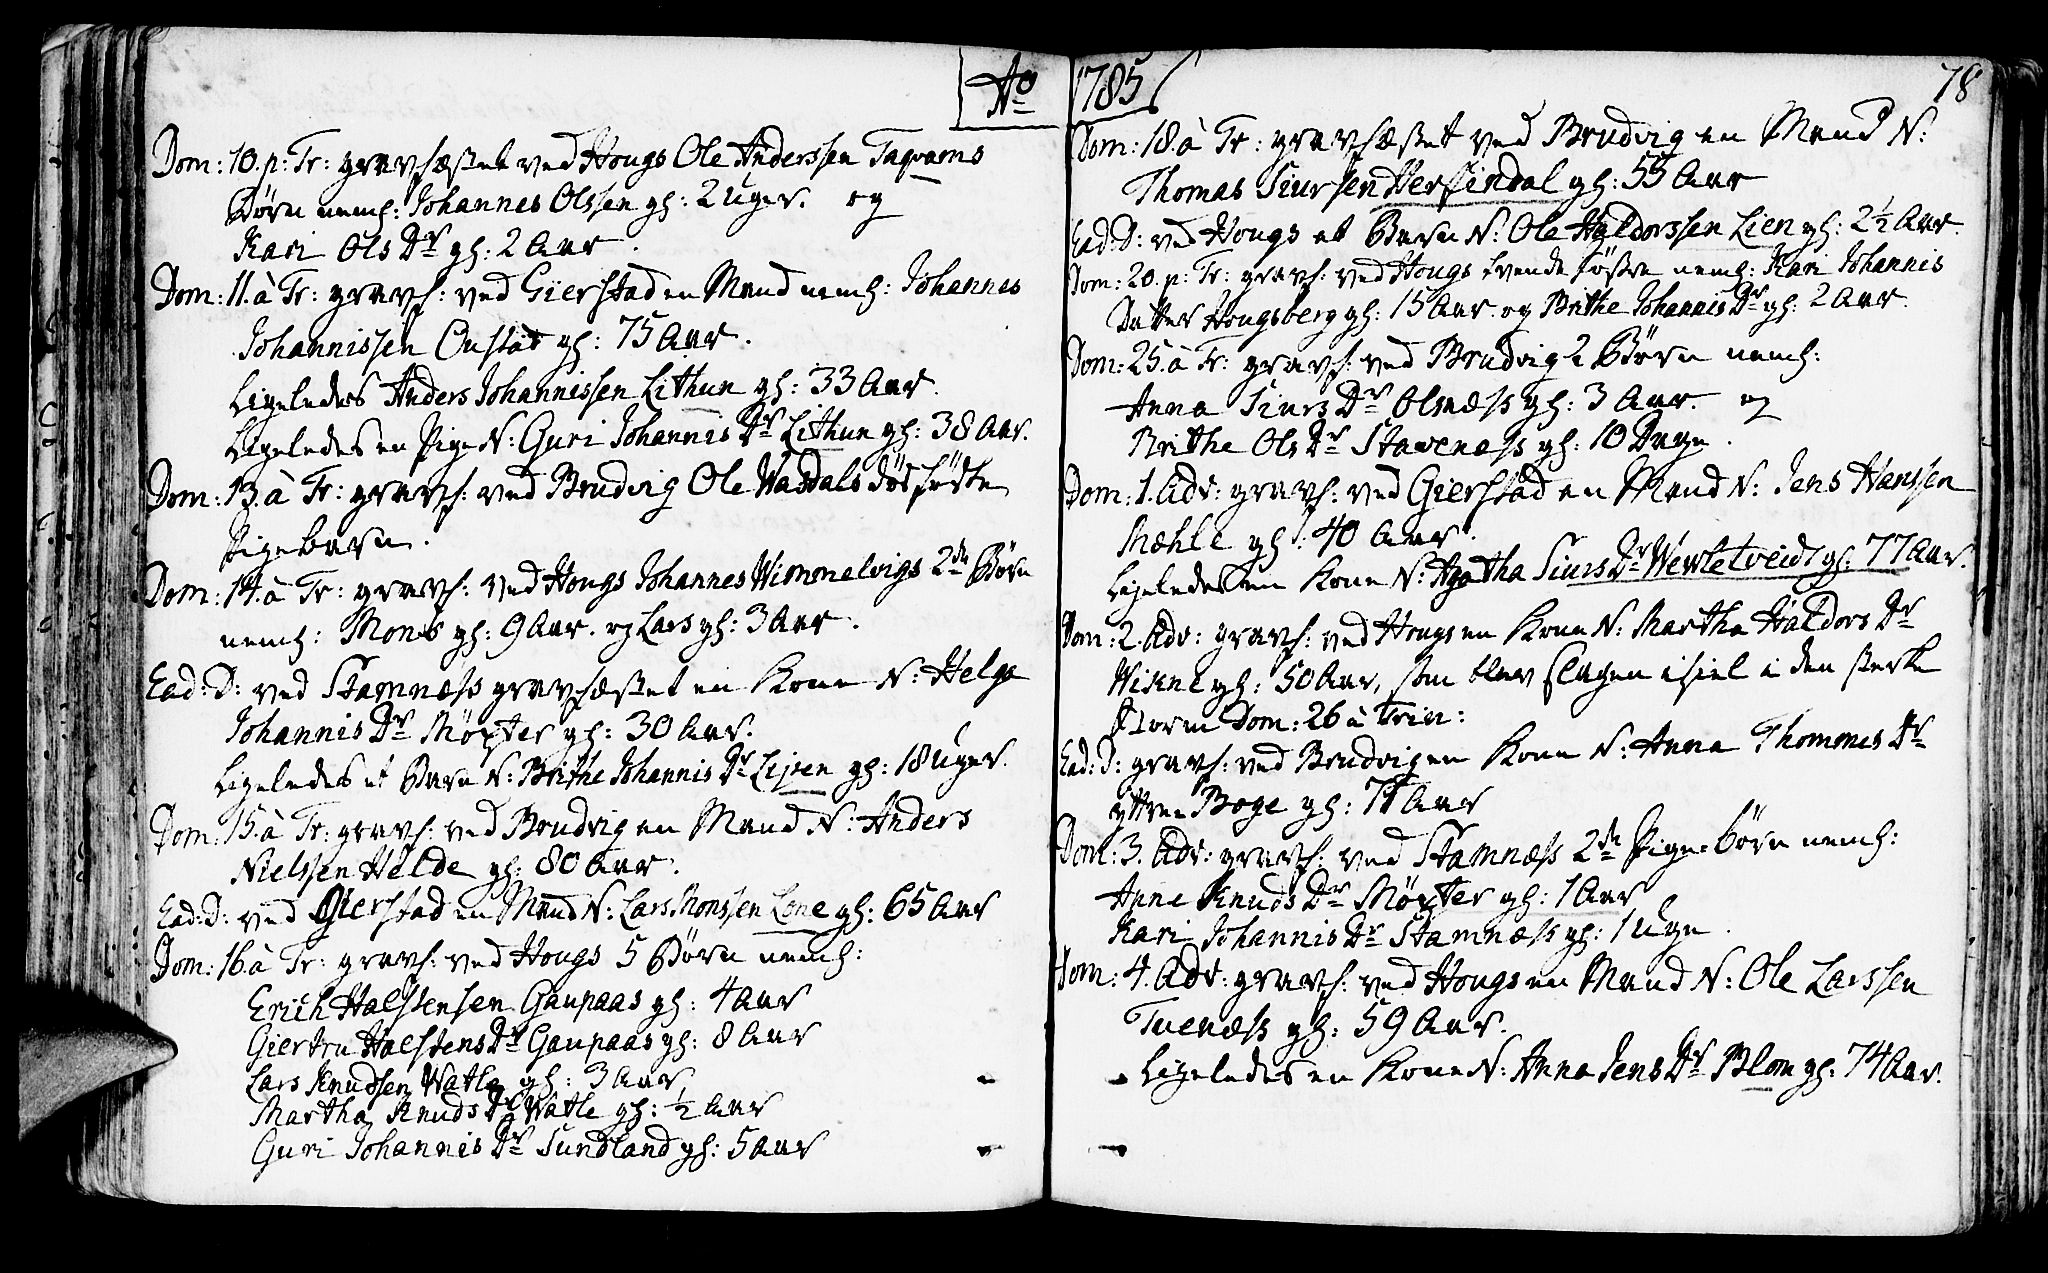 Ao 1785
78
Dom: 10. p: Tr: gravfæstet ved Hougs Ole Anderssen Taqvams
Børn neml: Johannes Olssen gl: 2 Uger. og
Kari Ols Dr gl: 2 Aar.
Dom: 11. à Tr: gravf: ved Gierstad en Mand neml: Johannes
Johannissen Oustad gl: 75 Aar.
Ligeledes Anders Johannissen Lithun gl: 33 Aar.
Ligeledes en Pige N: Guri Johannis Dr Lithun gl: 38 Aar.
Dom: 13. à Tr: gravf: ved Brudvig Ole Waddals dødfødte
Pigebarn.
Dom: 14. à Tr: gravf: ved Hougs Johannes Wimmelvigs 2de Børn
neml: Mons gl: 9 Aar. og Lars gl: 3 Aar.
Ead: D: ved Stamnæss gravfæstet en Kone N: Helga
Johannis Dr Møxter gl: 30 Aar.
Ligeledes et Barn N: Brithe Johannis Dr gl: 18 Uger.
Dom: 15. à Tr: gravf: ved Brudvig en Mand N: Anders
Nielssen Helde gl: 80 Aar.
Ead: D: ved Gierstad en Mand N: Lars Monssen Lone gl: 65 Aar
Dom: 16. à Tr: gravf: ved Hougs 5 Børn neml:
Erich Halstensen Gaupaas gl: 4 Aar
Giertru Halstens Dr Gaupaas gl: 8 Aar
Lars Knudsen Watle gl: 3 Aar
Martha Knuds Dr Watle gl: ½ Aar
Guri Johannis Dr Sundland gl: 5 Aar
Dom: 18. à Tr: gravfæstet ved Brudvig en Mand N:
Thomas Siursen Hersindal gl: 55 Aar
Ead: D: ved Hougs et Barn N: Ole Haldorssen Lien gl: 2½ Aar.
Dom: 20. p: Tr: gravf: ved Hougs tvende Søstre neml: Kari Johannis
Datter Hougsberg gl: 15 Aar. og Brithe Johannis Dr gl: 2 Aar.
Dom: 25. à Tr: gravf: ved Brudvig 2 Børn neml:
Anna Siurs Dr Olsnæss gl: 3 Aar. og
Brithe Ols Dr Stavenæss gl: 10 Dage.
Dom: 1. Adv: gravf: ved Gierstad en Mand N: Jens Hanssen
Mæhle gl: 40 Aar.
Ligeledes en Kone N: Agatha Siurs Dr Wewletveidt gl: 77 Aar.
Dom: 2. Adv: gravf: ved Hougs en Kone N: Martha Haldors Dr
Wikne gl: 50 Aar, som blev slagen ihiel i den sterke
Storm Dom: 26 à Trin:
Ead: D: gravf: ved Brudvig en Kone N: Anna Thommes Dr
yttre Boge gl: 71 Aar
Dom: 3. Adv: gravf: ved Stamnæss 2de Pige-børn neml:
Anne Knuds Dr Møxter gl: 1 Aar
Kari Johannis Dr Stamnæss gl: 1 Uge.
Dom: 4. Adv: gravf: ved Hougs en Mand N: Ole Larssen
Tuenæss gl: 59 Aar.
Ligeledes en Kone N: Anna Jens Dr Blom gl: 74 Aar.